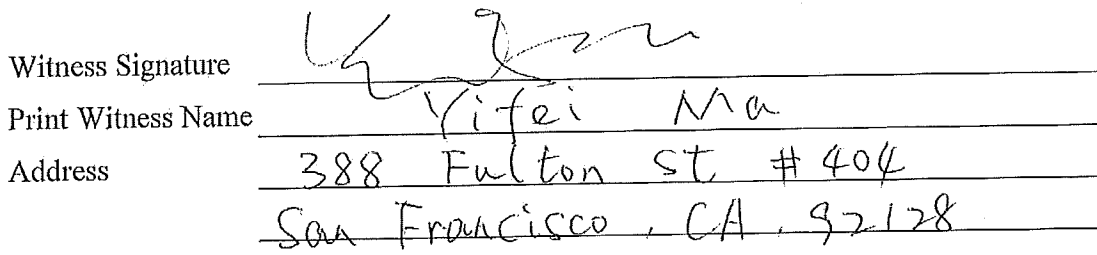 Witness Signature
Print Witness Name Yifei Ma
Address 388 Fulton St # 404
San Francisco, CA, 92128